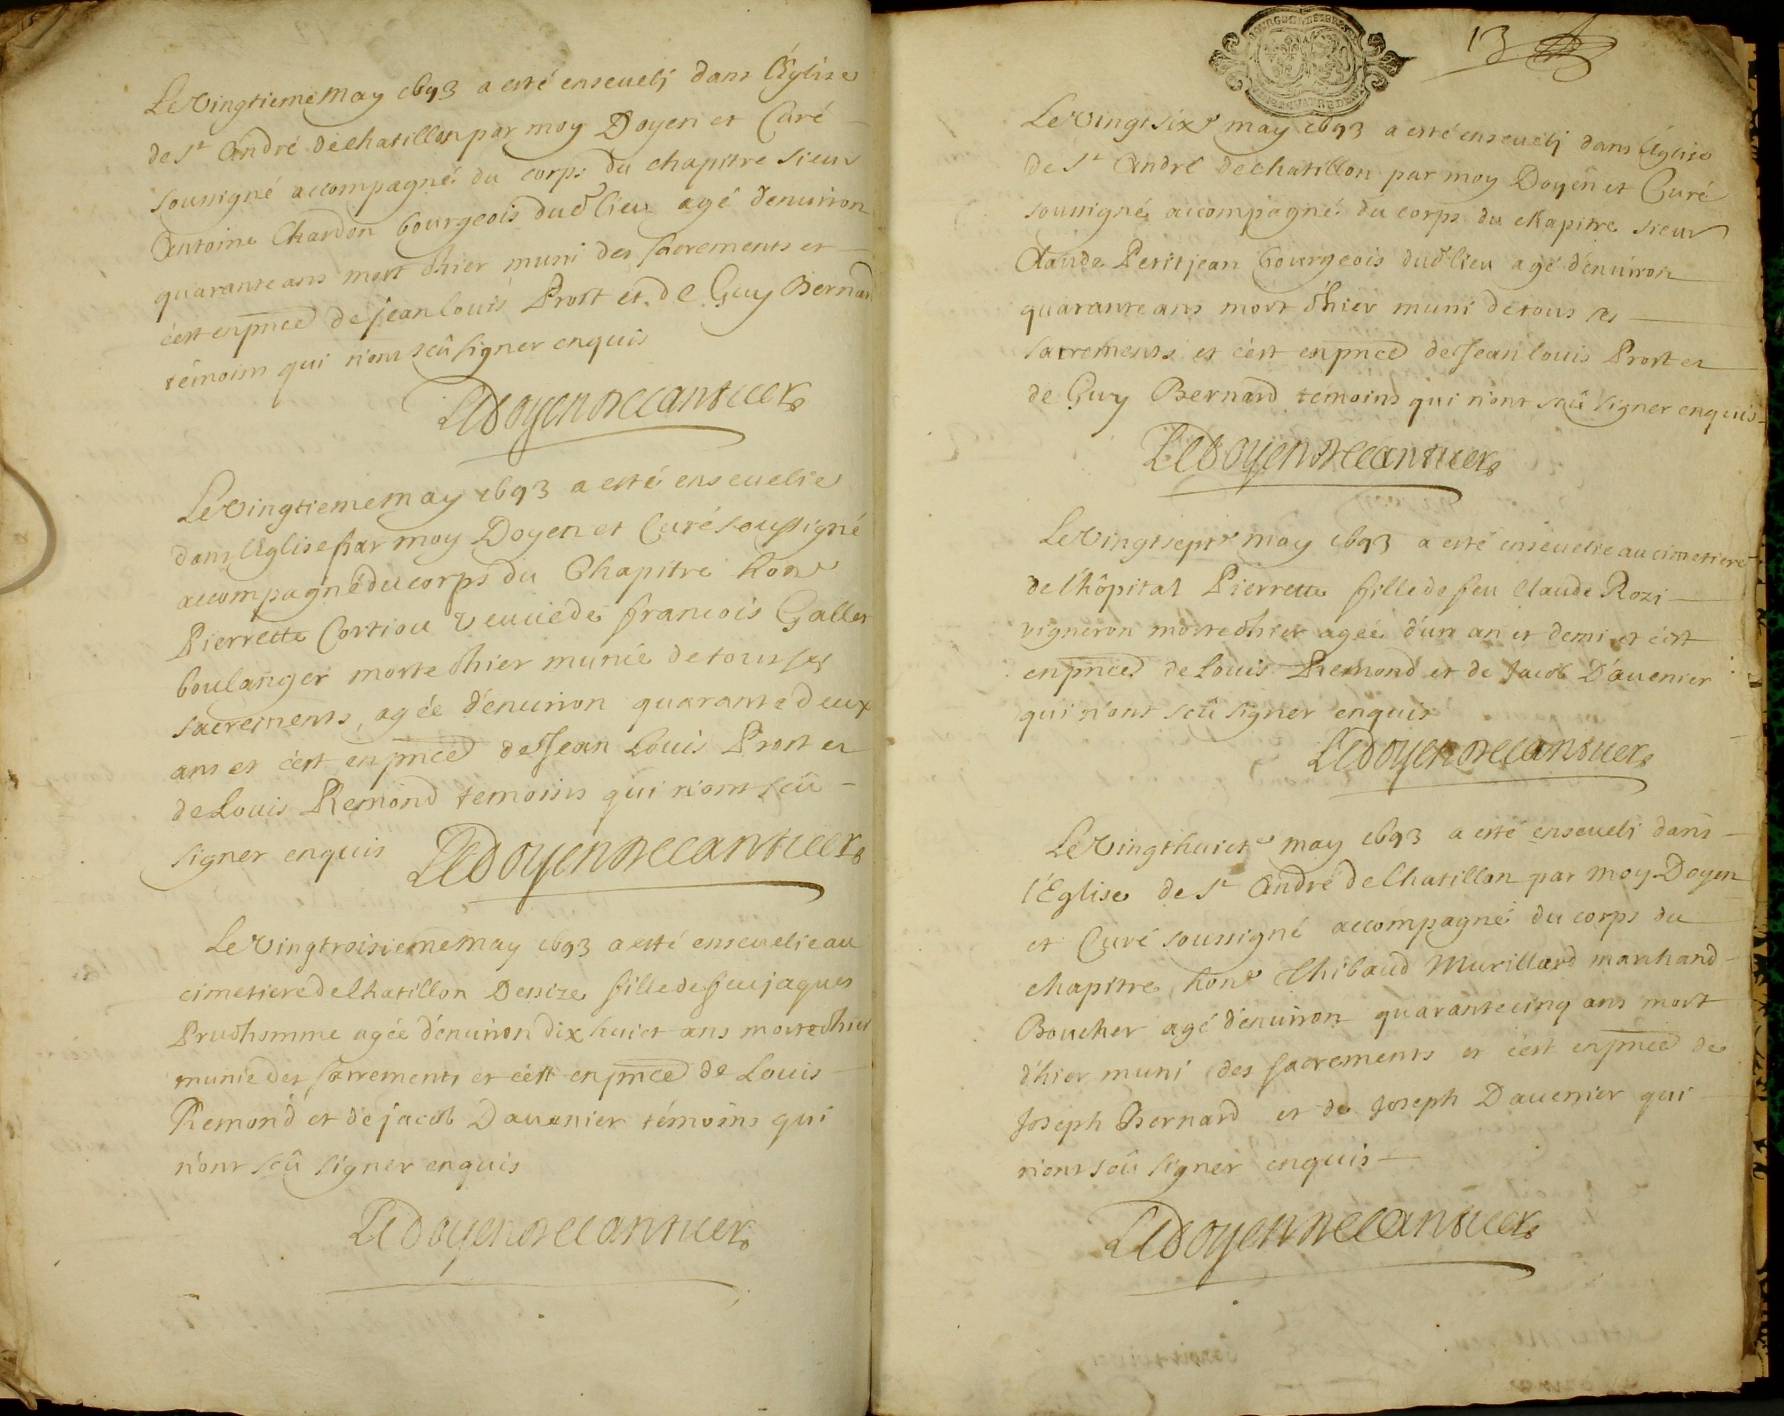 Le vingtieme may 1693 a esté enseveli dans l'Eglise
de St André de chatillon par moy Doyen et Curé
soussigné accompagné du corps du chapitre sieur
Antoine Chardon bourgeois dud lieu agé d'environ
quarante ans mort d'hier muni des sacrements et
c'est en pnce de jean louis Prost et de Guy Bernard
témoins qui n'ont sçû signer enquis
Le doyen
Le vingtieme may 1693 a esté ensevelie
dans l'Eglise par moy Doyen et Curé soussigné
accompagné du corps du Chapitre hone
Pierrette Cortiou veuve de francois Gallet
boulanger morte d'hier munie de tous ses
sacrements, agée d'environ quarante deux
ans et c'est en pnce de Jean Louis Prost et
de Louis Remond temoins qui n'ont sçû
signer enquis Le doyen
Le vingtroisieme may 1693 a esté ensevelie au
cimetiere de Chatillon Denize fille de feu jaques
Prudhomme agée d'environ dix huict ans morte d'hier
munie des sacrements et c'est en pnce de Louis
Remond et de jacob Davenier témoins qui
n'ont sçû signer enquis
Le doyen
13
Le vingt sixe may 1693 a esté enseveli dans l'Eglise
de St André de chatillon par moy Doyen et Curé
soussigné accompagné du corps du chapitre sieur
Claude Petitjean bourgeois dud lieu agé d'environ
quarante ans mort d'hier muni de tous ses
sacrements et c'est en pnce de Jean louis Prost et
de Guy Bernard témoins qui n'ont sçû signer enquis
Le doyen
Le vingtsepte may 1693 a esté ensevelie au cimetiere
de l'hôpital Pierrette fille de feu Claude Rozi
vigneron morte d'hier agée d'un an et demi et c'est
en pnce de Louis Remond et de Jacob Davenier
qui n'ont sçû signer enquis
Le doyen
Le vingthuicte may 1693 a esté enseveli dans
l'Eglise de St André de Chatillon par moy Doyen
et Curé soussigné accompagné du corps du
chapitre, hone Thibaud Murillard marchand
Boucher agé d'environ quarantecinq ans mort
d'hier muni des sacrements et c'est en pnce de
Joseph Bernard et de Joseph Davenier qui
n'ont sçû signer enquis
Le doyen